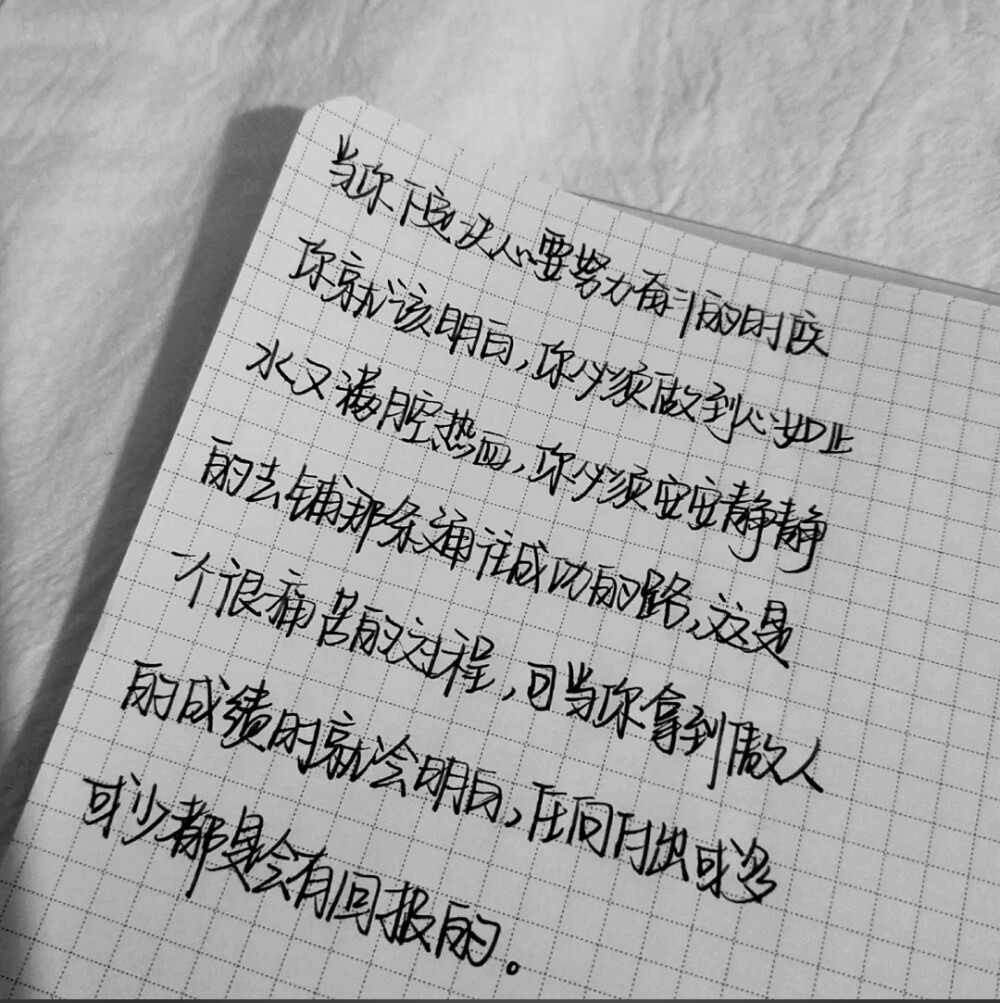 当你下定决心要努力奋斗的时候
你就该明白,你必须做到心如止
水又满腔热血,你必须安安静静
的去铺那条通往成功的路,这是
一个很痛苦的过程,可当你拿到傲人
的成绩时就会明白,任何付出或多
或少都是会有回报的。